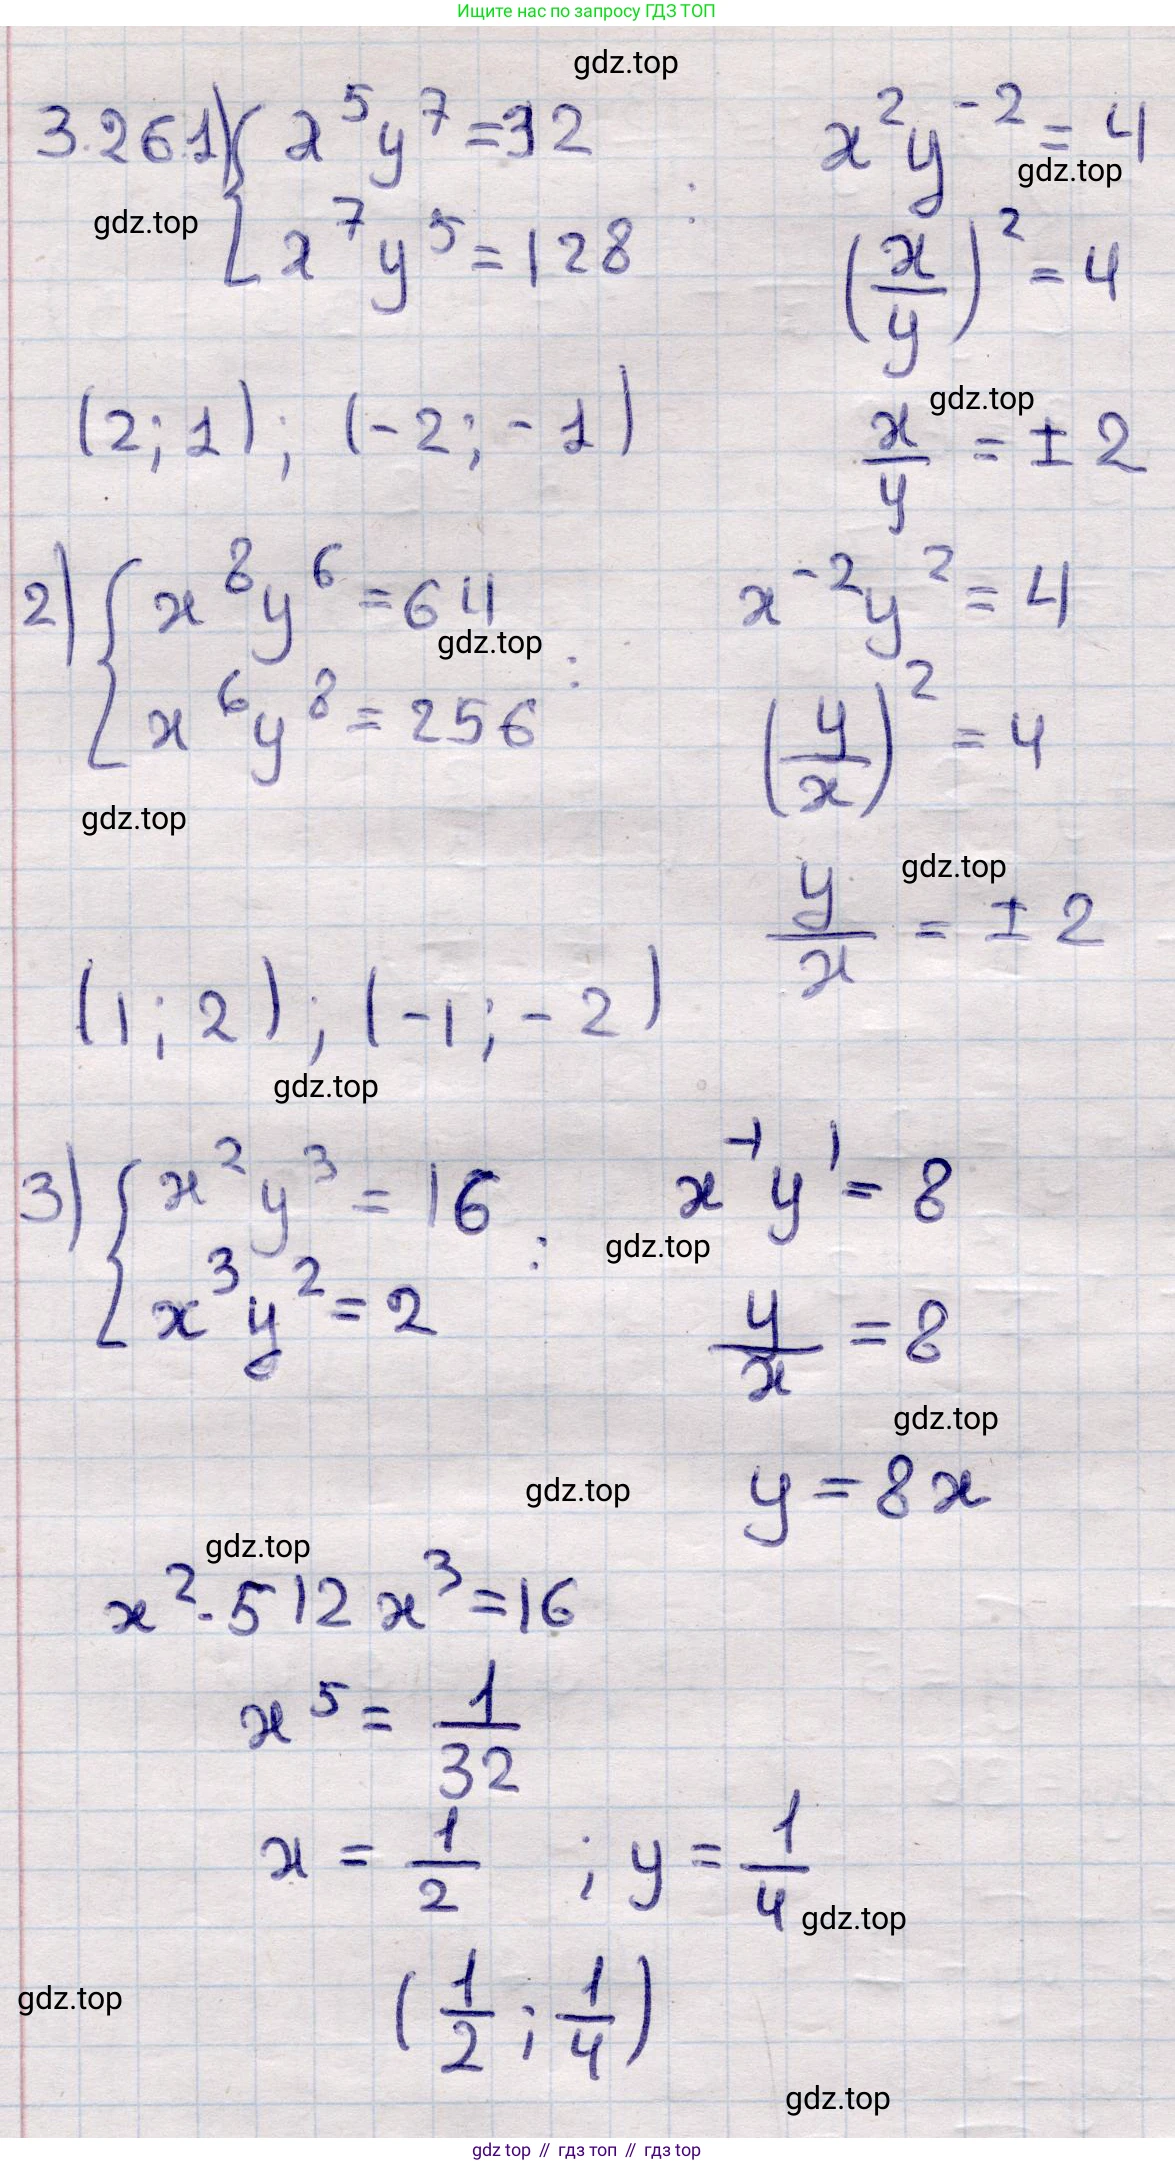 Ищите нас по запросу ГДЗ ТОП
gdz.top
3.261) { x⁵y⁷ = 32 x²y⁻² = 4
gdz.top
gdz.top
x⁷y⁵ = 128 : (x/y)² = 4
gdz.top
(2; 1); (-2; -1) x/y = ± 2
2) { x⁸y⁶ = 64 x⁻²y² = 4
gdz.top
x⁶y⁸ = 256 : (y/x)² = 4
gdz.top
gdz.top
y/x = ± 2
(1; 2); (-1; -2)
gdz.top
3) { x²y³ = 16 x⁻¹y¹ = 8
gdz.top
x³y² = 2 : y/x = 8
gdz.top
gdz.top
y = 8x
gdz.top
x² · 512x³ = 16
x⁵ = 1/32
x = 1/2 ; y = 1/4
gdz.top
gdz.top
(1/2 ; 1/4)
gdz.top
gdz top // гдз топ // гдз top